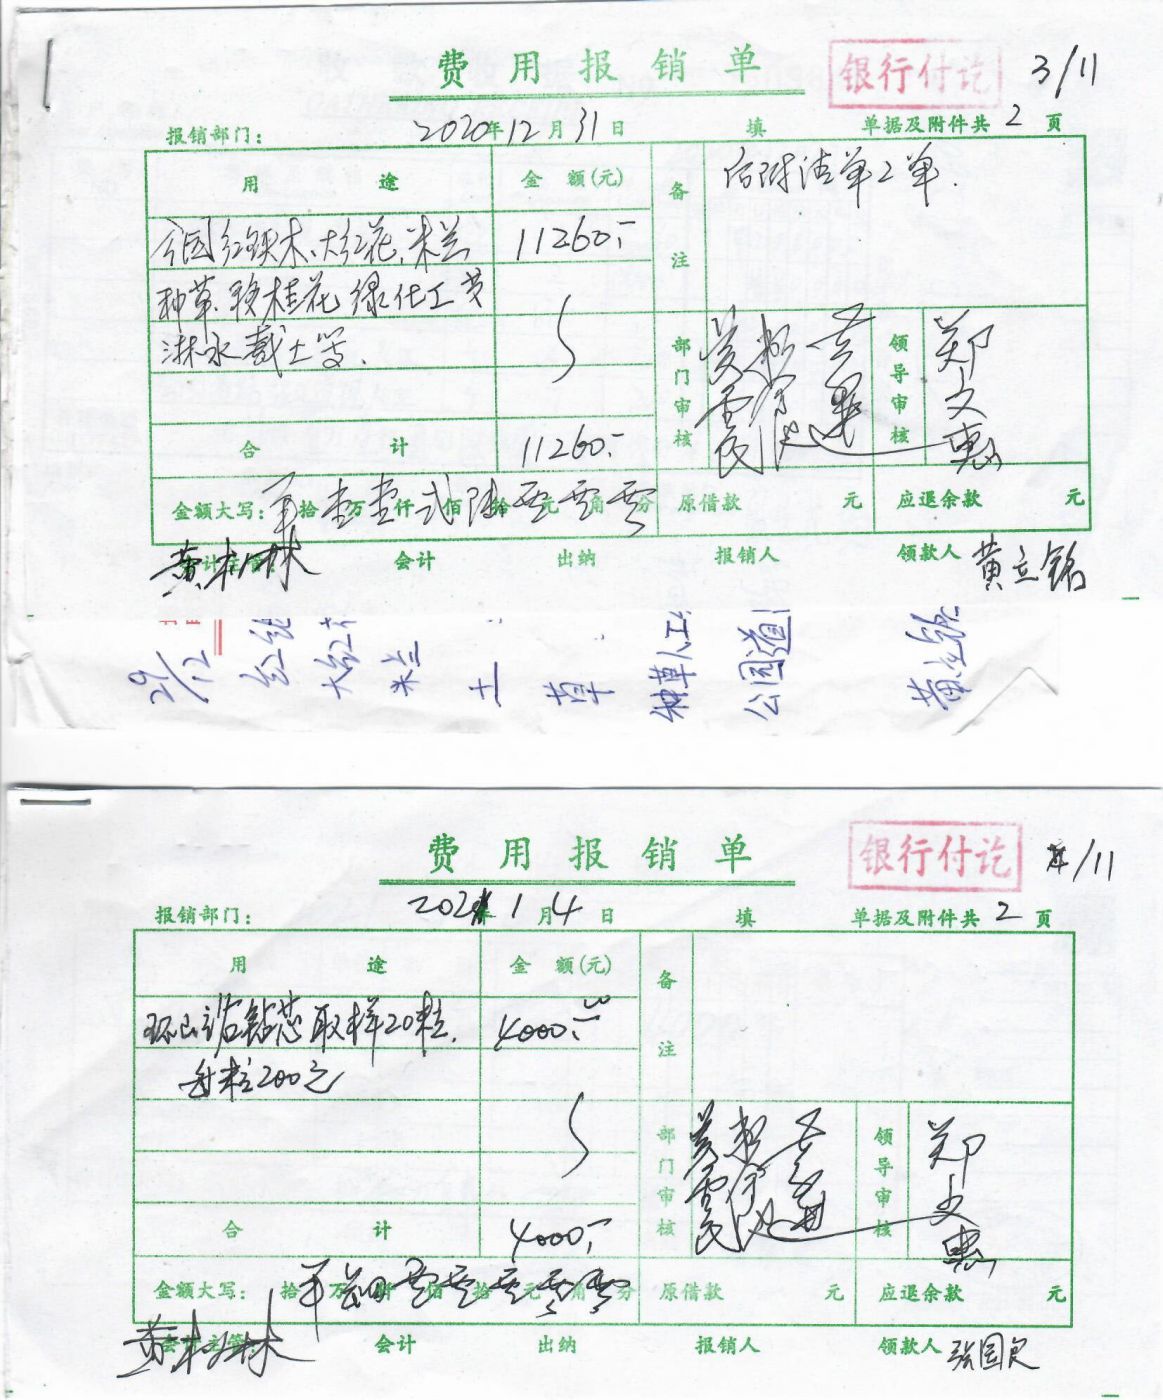 费用报销单
银行付讫
3/11
报销部门:
2020年12月31日
填
单据及附件共2页
用途
金额(元)
备注
后附清单2单.
公园红铁木、大红花、米兰
11260.-
种草、移桂花 绿化工资
淋水 载土等.
部门审核
领导审核
郑文惠
合计
11260.-
金额大写: 拾壹万壹仟弍佰陆拾零元零角零分
原借款 元
应退余款 元
黄木林
会计
出纳
报销人
领款人 黄立铭
29/12
大红花
米兰
土
草
种草人工
公园道
费用报销单
银行付讫
/11
报销部门:
2021年1月4日
填
单据及附件共2页
用途
金额(元)
备注
钻芯取样20粒.
4000.-
每粒200元
部门审核
领导审核
郑文惠
合计
4000.-
金额大写: 拾 万肆仟零佰零拾零元零角零分
原借款 元
应退余款 元
会计主管
会计
出纳
报销人
领款人 张国良